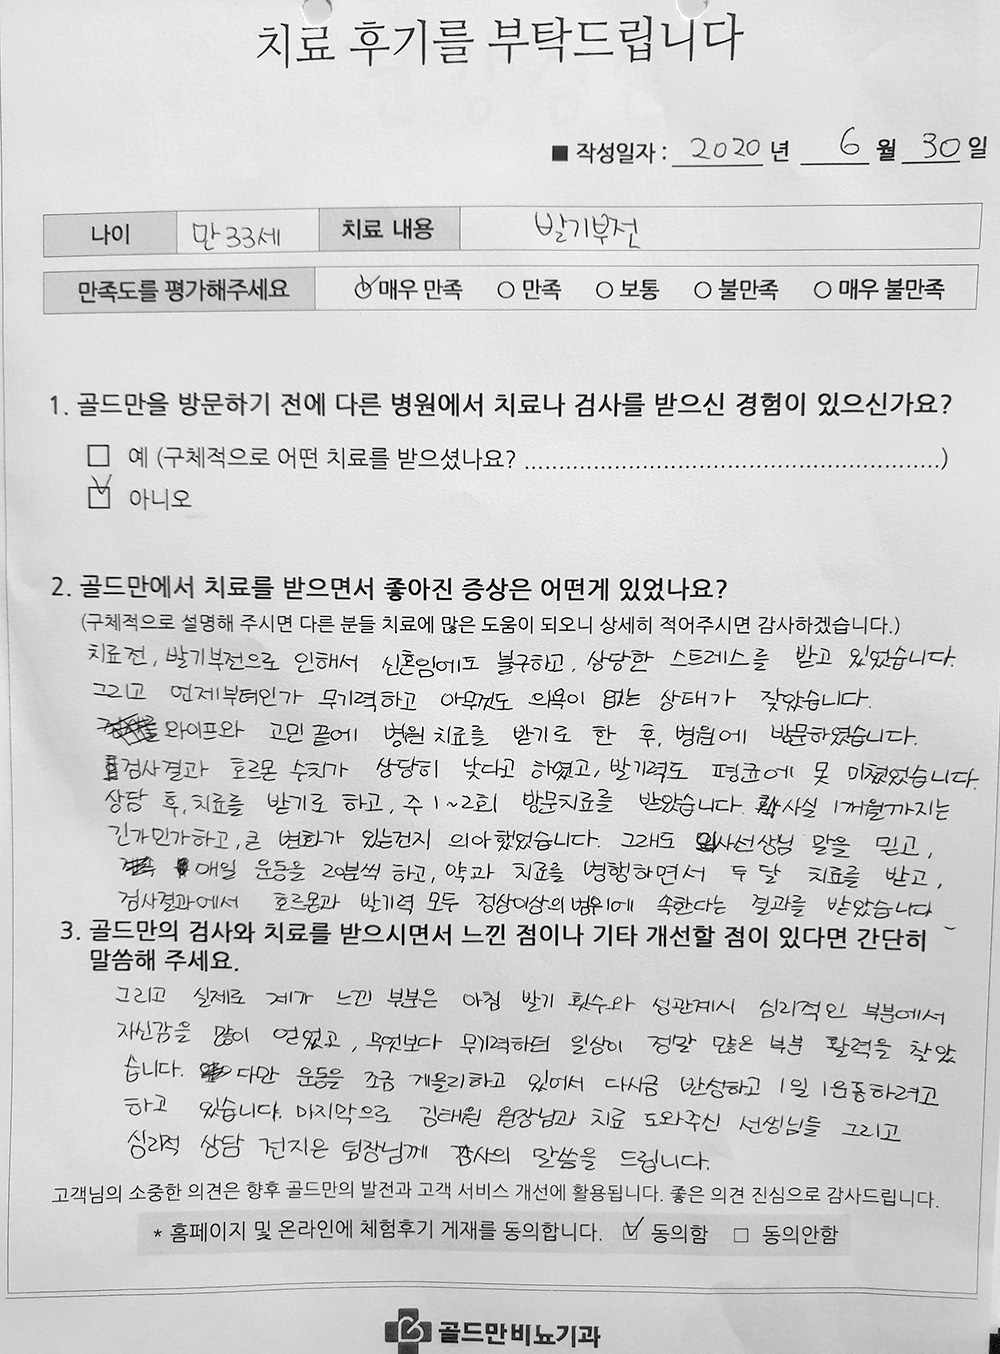 치료 후기를 부탁드립니다
■ 작성일자 : 2020 년 6 월 30 일
나이 만 33세 치료 내용 발기부전
만족도를 평가해주세요 매우 만족 ○ 만족 ○ 보통 ○ 불만족 ○ 매우 불만족
1. 골드만을 방문하기 전에 다른 병원에서 치료나 검사를 받으신 경험이 있으신가요?
□ 예 (구체적으로 어떤 치료를 받으셨나요? ..........................................................)
☑ 아니오
2. 골드만에서 치료를 받으면서 좋아진 증상은 어떤게 있었나요?
(구체적으로 설명해 주시면 다른 분들 치료에 많은 도움이 되오니 상세히 적어주시면 감사하겠습니다.)
치료전, 발기부전으로 인해서 신혼임에도 불구하고, 상당한 스트레스를 받고 있었습니다.
그리고 언제부터인가 무기력하고 아무것도 의욕이 없는 상태가 잦았습니다.
와이프와 고민 끝에 병원 치료를 받기로 한 후, 병원에 방문하였습니다.
검사결과 호르몬 수치가 상당히 낮다고 하였고, 발기력도 평균에 못 미쳤었습니다.
상담 후, 치료를 받기로 하고, 주 1~2회 방문치료를 받았습니다. 사실 1개월까지는
긴가민가하고, 큰 변화가 있는건지 의아했었습니다. 그래도 의사선생님 말을 믿고,
매일 운동을 20분씩 하고, 약과 치료를 병행하면서 두 달 치료를 받고,
검사결과에서 호르몽과 발기력 모두 정상이상의 범위에 속한다는 결과를 받았습니다
3. 골드만의 검사와 치료를 받으시면서 느낀 점이나 기타 개선할 점이 있다면 간단히
말씀해 주세요.
그리고 실제로 제가 느낀 부분은 아침 발기 횟수와 성관계시 심리적인 부분에서
자신감을 많이 얻었고, 무엇보다 무기력하던 일상이 정말 많은 부분 활력을 찾았
습니다. 다만 운동을 조금 게을리하고 있어서 다시금 반성하고 1일 1운동하려고
하고 있습니다. 마지막으로 김태원 원장님과 치료 도와주신 선생님들 그리고
심리적 상담 전지은 팀장님께 감사의 말씀을 드립니다.
고객님의 소중한 의견은 향후 골드만의 발전과 고객 서비스 개선에 활용됩니다. 좋은 의견 진심으로 감사드립니다.
* 홈페이지 및 온라인에 체험후기 게재를 동의합니다. ☑ 동의함 □ 동의안함
골드만비뇨기과